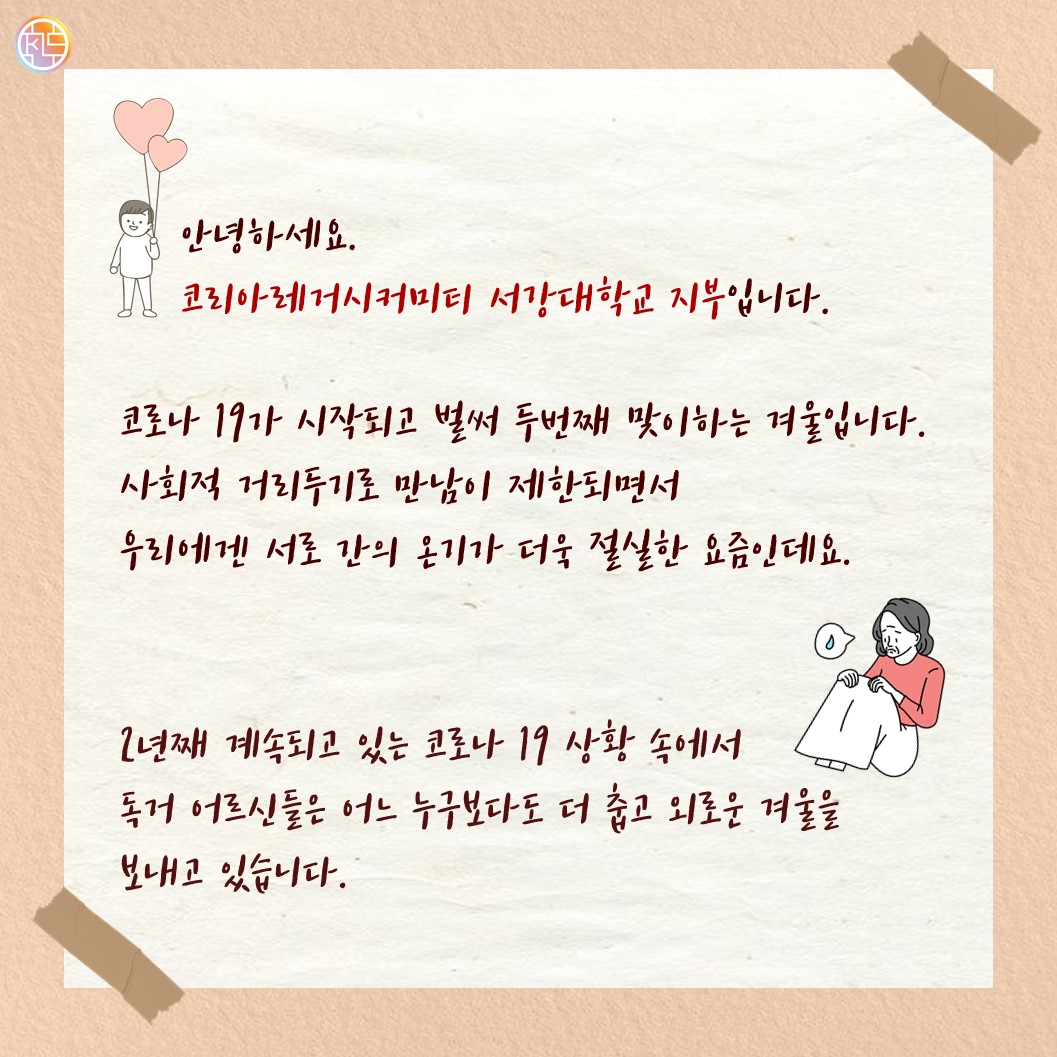 KLC
안녕하세요.
코리아레거시커미티 서강대학교 지부입니다.
코로나 19가 시작되고 벌써 두번째 맞이하는 겨울입니다.
사회적 거리두기로 만남이 제한되면서
우리에겐 서로 간의 온기가 더욱 절실한 요즘인데요.
2년째 계속되고 있는 코로나 19 상황 속에서
독거 어르신들은 어느 누구보다도 더 춥고 외로운 겨울을
보내고 있습니다.